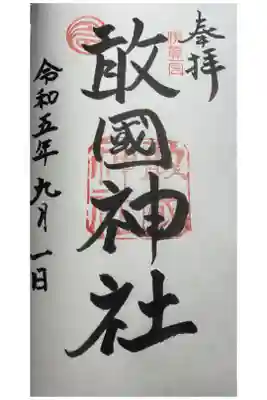 奉拝
敢國神社
令和五年九月一日